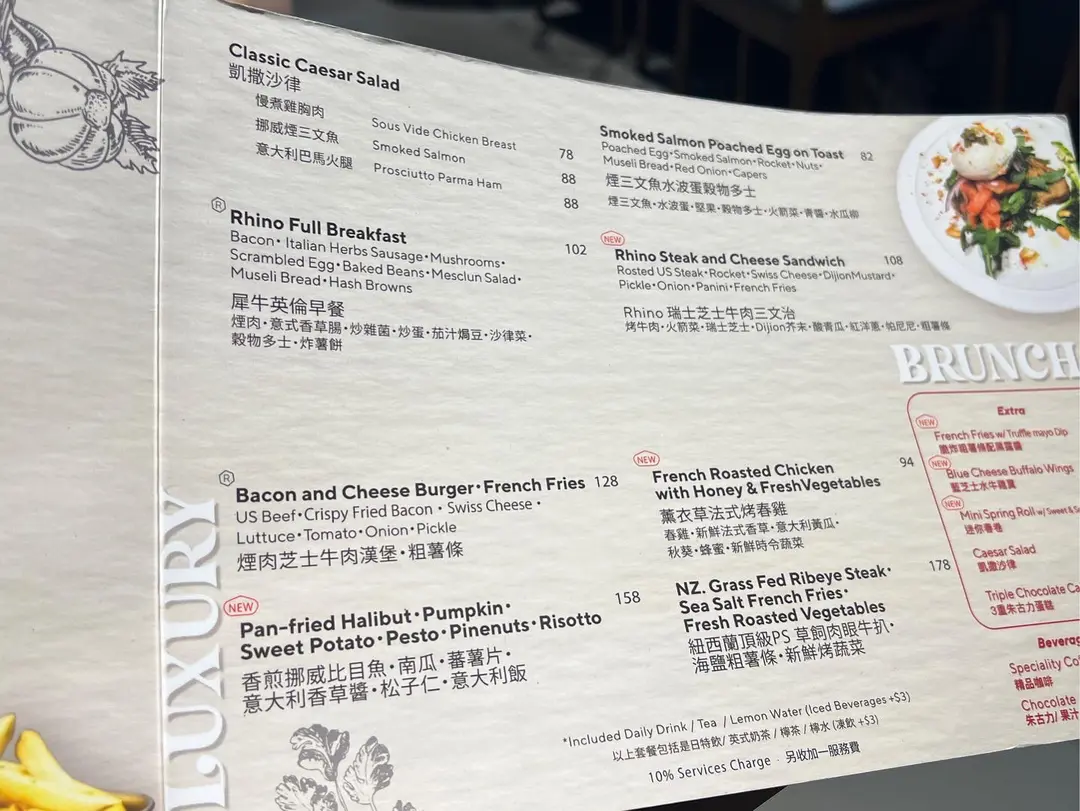 Classic Caesar Salad
凱撒沙律
慢煮雞胸肉 Sous Vide Chicken Breast 78
挪威煙三文魚 Smoked Salmon 88
意大利巴馬火腿 Prosciutto Parma Ham 88
®
Rhino Full Breakfast 102
Bacon• Italian Herbs Sausage•Mushrooms•
Scrambled Egg•Baked Beans•Mesclun Salad•
Museli Bread•Hash Browns
犀牛英倫早餐
煙肉•意式香草腸•炒雜菌•炒蛋•茄汁焗豆•沙律菜•
穀物多士•炸薯餅
Smoked Salmon Poached Egg on Toast 82
Poached Egg•Smoked Salmon•Rocket•Nuts•
Museli Bread•Red Onion•Capers
煙三文魚水波蛋穀物多士
煙三文魚•水波蛋•堅果•穀物多士•火箭菜•青醬•水瓜柳
NEW
Rhino Steak and Cheese Sandwich 108
Rosted US Steak•Rocket•Swiss Cheese•DijionMustard•
Pickle•Onion•Panini•French Fries
Rhino 瑞士芝士牛肉三文治
烤牛肉•火箭菜•瑞士芝士•Dijion芥末•酸青瓜•紅洋蔥•帕尼尼•粗薯條
BRUNCH
LUXURY
®
Bacon and Cheese Burger•French Fries 128
US Beef•Crispy Fried Bacon • Swiss Cheese •
Luttuce•Tomato•Onion•Pickle
煙肉芝士牛肉漢堡•粗薯條
NEW
Pan-fried Halibut•Pumpkin• 158
Sweet Potato•Pesto•Pinenuts•Risotto
香煎挪威比目魚•南瓜•蕃薯片•
意大利香草醬•松子仁•意大利飯
NEW
French Roasted Chicken 94
with Honey & FreshVegetables
薰衣草法式烤春雞
春雞•新鮮法式香草•意大利黃瓜•
秋葵•蜂蜜•新鮮時令蔬菜
NZ. Grass Fed Ribeye Steak• 178
Sea Salt French Fries•
Fresh Roasted Vegetables
紐西蘭頂級PS 草飼肉眼牛扒•
海鹽粗薯條•新鮮烤蔬菜
*Included Daily Drink / Tea / Lemon Water (Iced Beverages +$3)
以上套餐包括是日特飲/ 英式奶茶 / 檸茶 / 檸水 (凍飲 +$3)
10% Services Charge · 另收加一服務費
Extra
NEW
French Fries w/ Truffle mayo Dip
脆炸粗薯條配黑露醬
NEW
Blue Cheese Buffalo Wings
藍芝士水牛雞翼
NEW
Mini Spring Roll w/ Sweet & S
迷你春卷
Caesar Salad
凱撒沙律
Triple Chocolate Ca
3重朱古力蛋糕
Beverag
Speciality Co
精品咖啡
Chocolate
朱古力/ 果汁